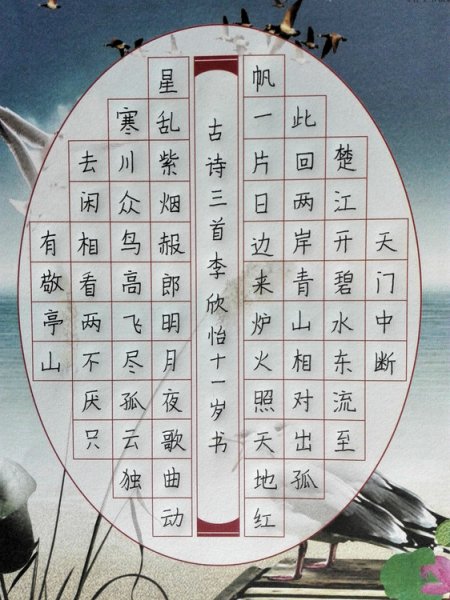 天门中断
楚江开碧水东流至
此回两岸青山相对出孤
帆一片日边来炉火照天地红
古诗三首李欣怡十一岁书
星乱紫烟赧郎明月夜歌曲动
寒川众鸟高飞尽孤云独
去闲相看两不厌只
有敬亭山